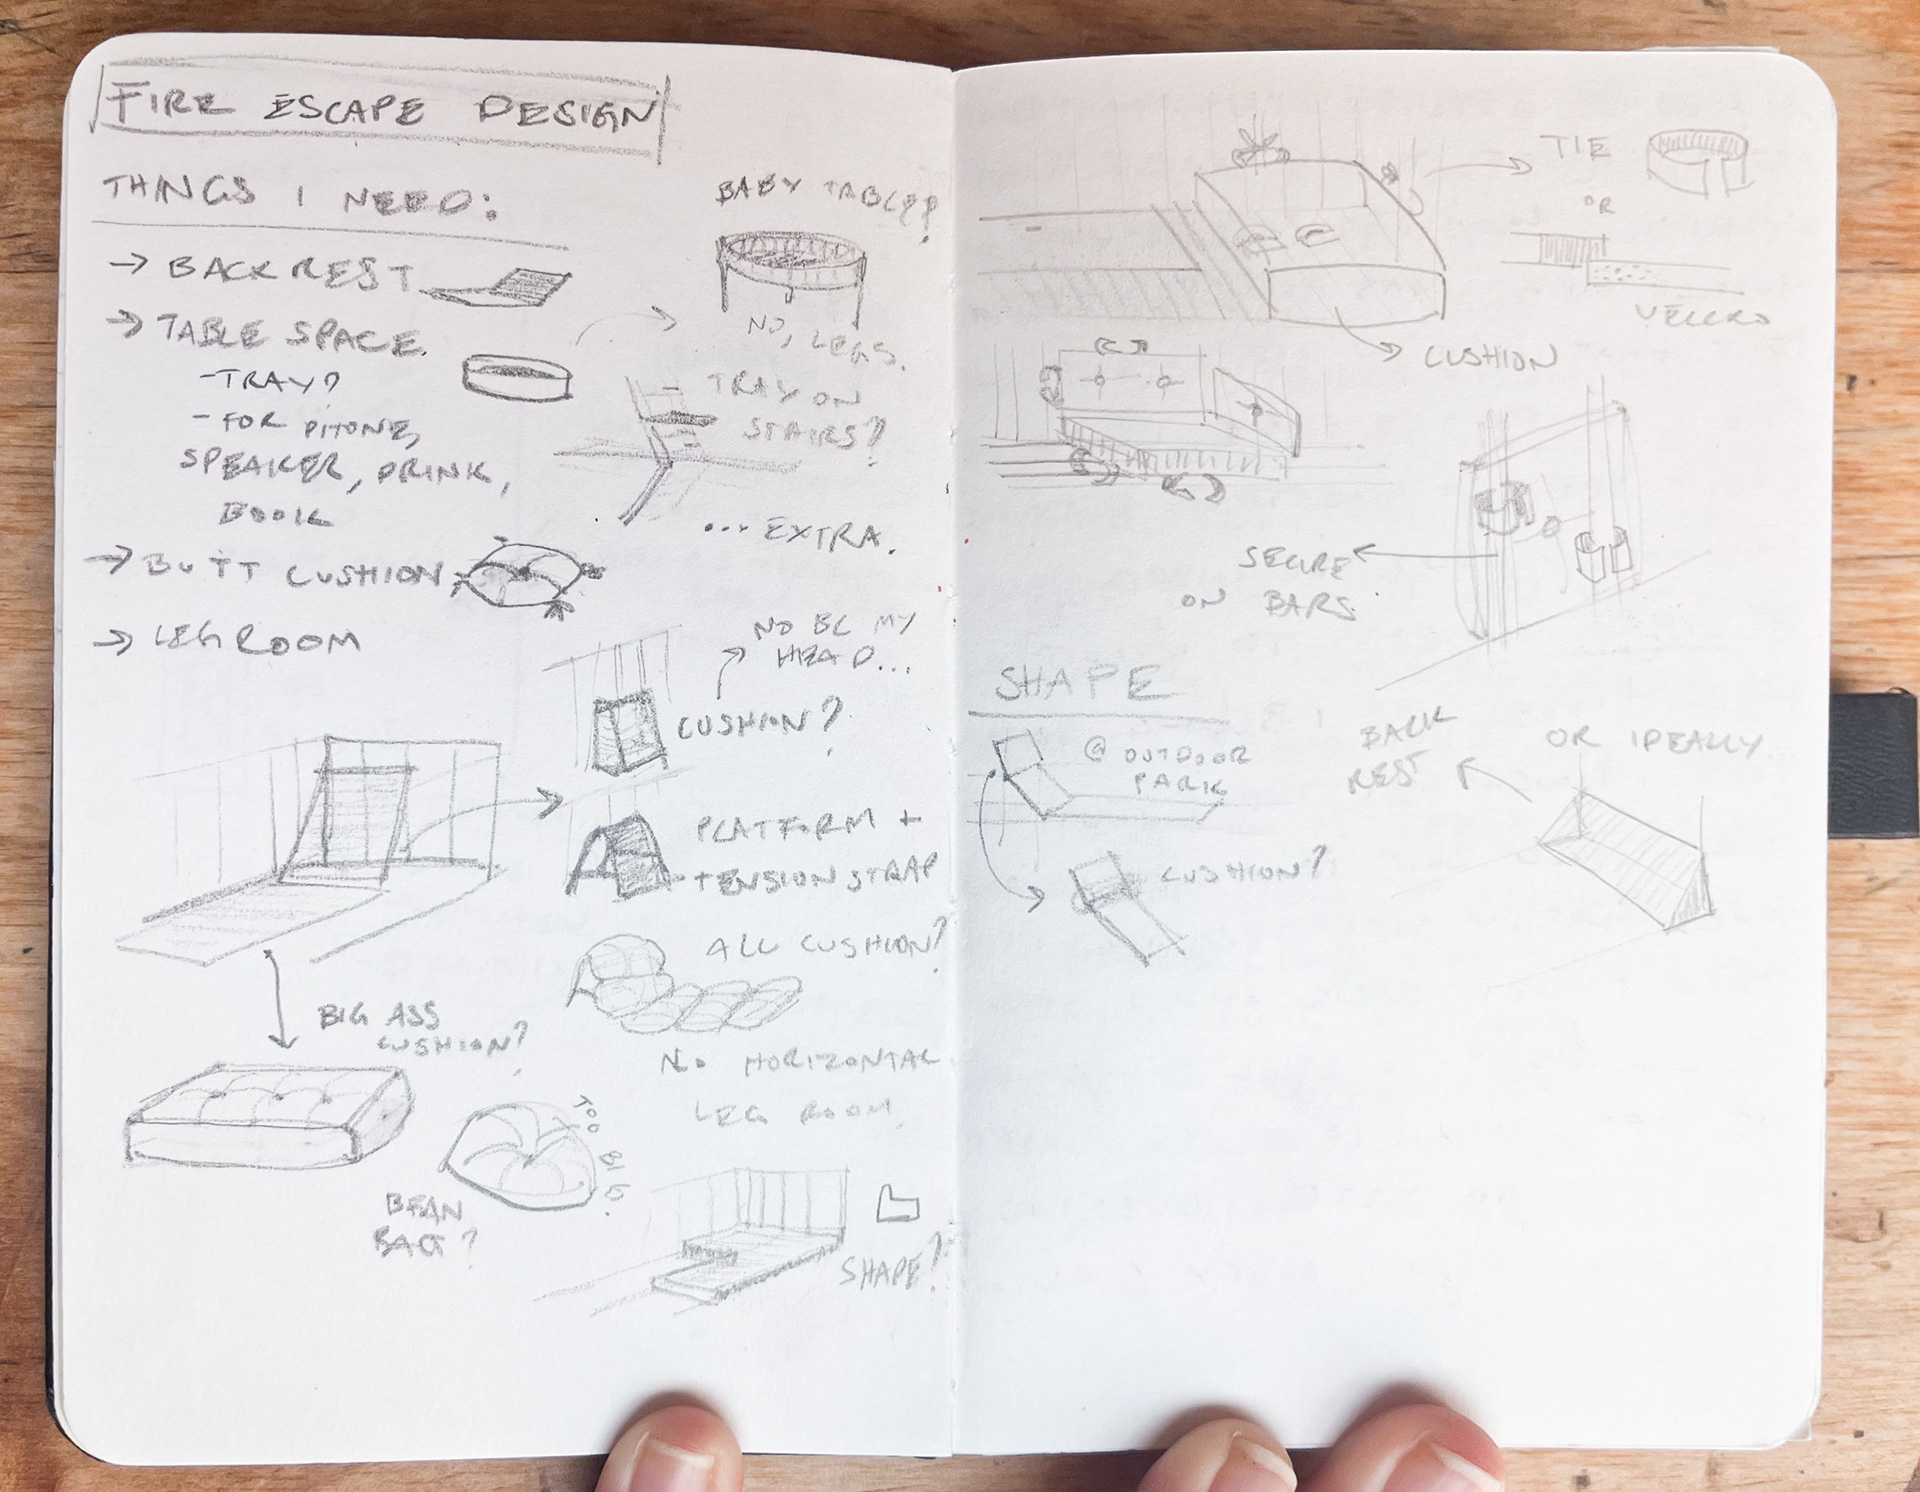 FIRE ESCAPE DESIGN
THINGS I NEED:
→ BACK REST
→ TABLE SPACE
- TRAY?
- FOR PHONE,
SPEAKER, DRINK,
BOOK
→ BUTT CUSHION
→ LEG ROOM
BABY TABLE?
NO, LEGS.
TRAY ON
STAIRS?
... EXTRA.
NO BC MY
HEAD...
CUSHION?
PLATFORM +
TENSION STRAP
ALL CUSHION?
NO HORIZONTAL
LEG ROOM
BIG ASS
CUSHION?
BEAN
BAG?
TOO BIG.
SHAPE?
TIE
OR
VELCRO
CUSHION
SECURE
ON BARS.
SHAPE
@ OUTDOOR
PARK
CUSHION?
BACK
REST
OR IDEALLY